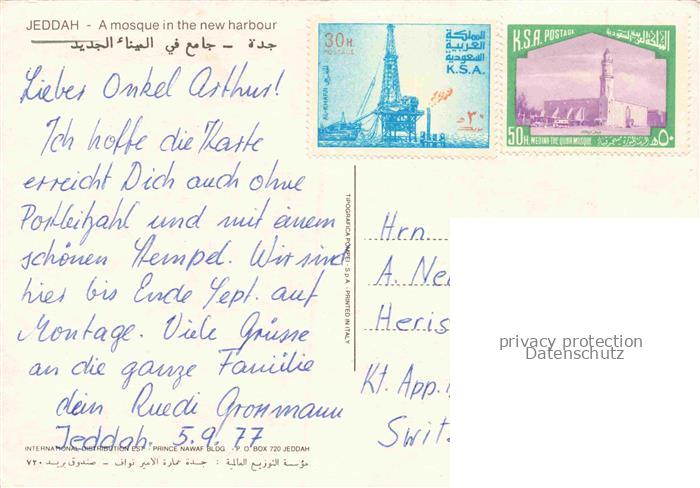 JEDDAH - A mosque in the new harbour
جدة - جامع في الميناء الجديد
Lieber Onkel Arthur!
Ich hoffe die Karte
erreicht Dich auch ohne
Postleitzahl und mit einem
schönen Stempel. Wir sind
hier bis Ende Sept. auf
Montage. Viele Grüsse
an die ganze Familie
dein Ruedi Gronmann
Jeddah. 5.9.77
INTERNATIONAL DISTRIBUTION EST - PRINCE NAWAF BLDG. - P. O BOX 720 JEDDAH
مؤسسة التوزيع العالمية : جدة عمارة الامير نواف - صندوق بريد ٧٢٠
TIPOGRAFICA POMPEI - S.p.A. - PRINTED IN ITALY
30H
POSTAGE
AL-KHAFJI
المملكة
العربية
السعودية
K.S.A.
٣٠
بريد
K.S.A. POSTAGE
المملكة العربية السعودية
50H. MEDINA-THE QUBA MOSQUE
٥٠
Hrn
A. Ne
Heris
Kt. App.
Swit
privacy protection
Datenschutz